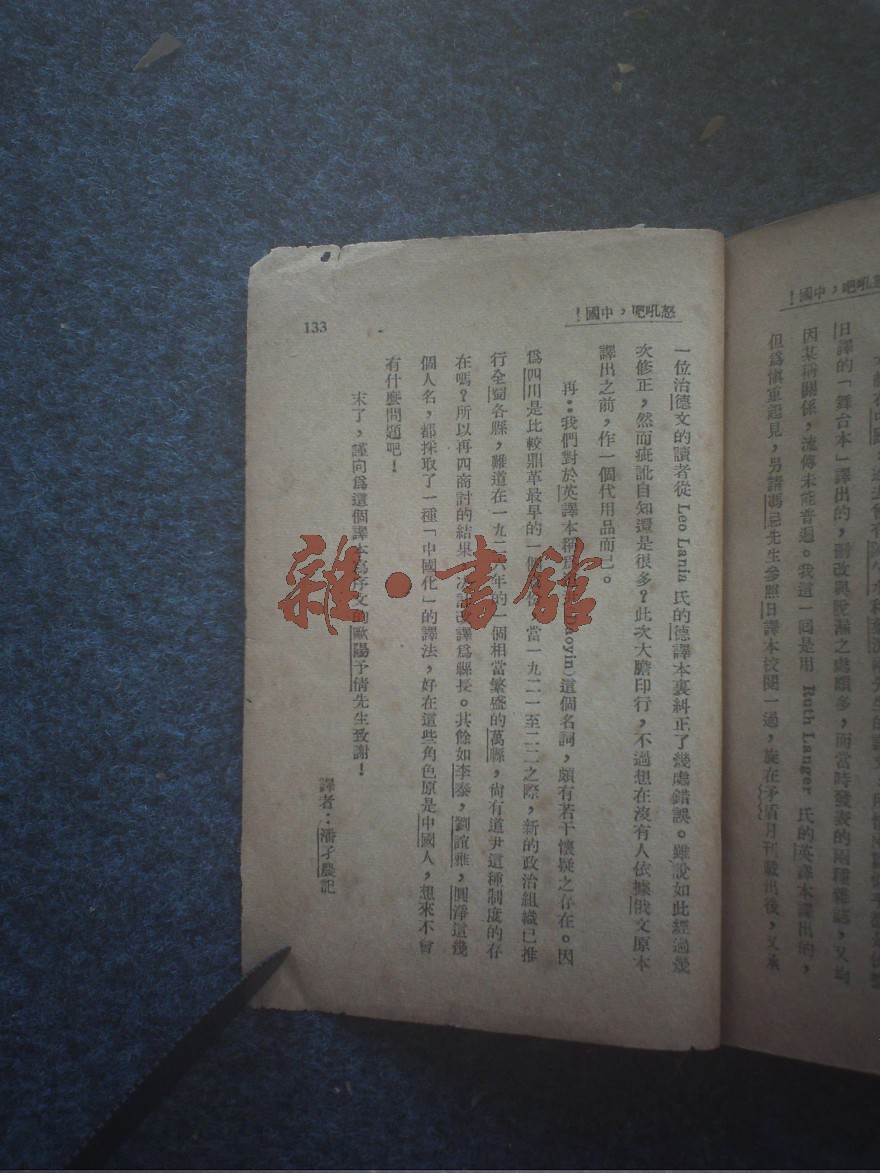 怒吼吧，中國！
日譯的「舞台本」譯出的，
因某種關係，流傳未能普遍。我這一回是用 Ruth Langer 氏的英譯本譯出的，
但爲愼重起見，另請馮忌先生參照日譯本校閱一過，旋在矛盾月刊載出後，又承
怒吼吧，中國！
一位治德文的讀者從 Leo Lania 氏的德譯本裏糾正了幾處錯誤。雖說如此經過幾
次修正，然而疵訛自知還是很多？此次大膽印行，不過想在沒有人依據俄文原本
譯出之前，作一個代用品而已。
再：我們對於英譯本稱 (Daoyin) 這個名詞，頗有若干懷疑之存在。因
爲四川是比較鼎革最早的一個 當一九二一至二二之際，新的政治組織已推
行全蜀各縣，難道在一九二六年的一個相當繁盛的萬縣，尙有道尹這種制度的存
在嗎？所以再四商討的結果 改譯爲縣長。其餘如李泰，劉誼雅，圓淨這幾
個人名，都採取了一種「中國化」的譯法，好在這些角色原是中國人，想來不會
有什麼問題吧！
末了，謹向爲這個譯本寫序文的歐陽予倩先生致謝！
譯者：潘孑農記
133
雜·書館